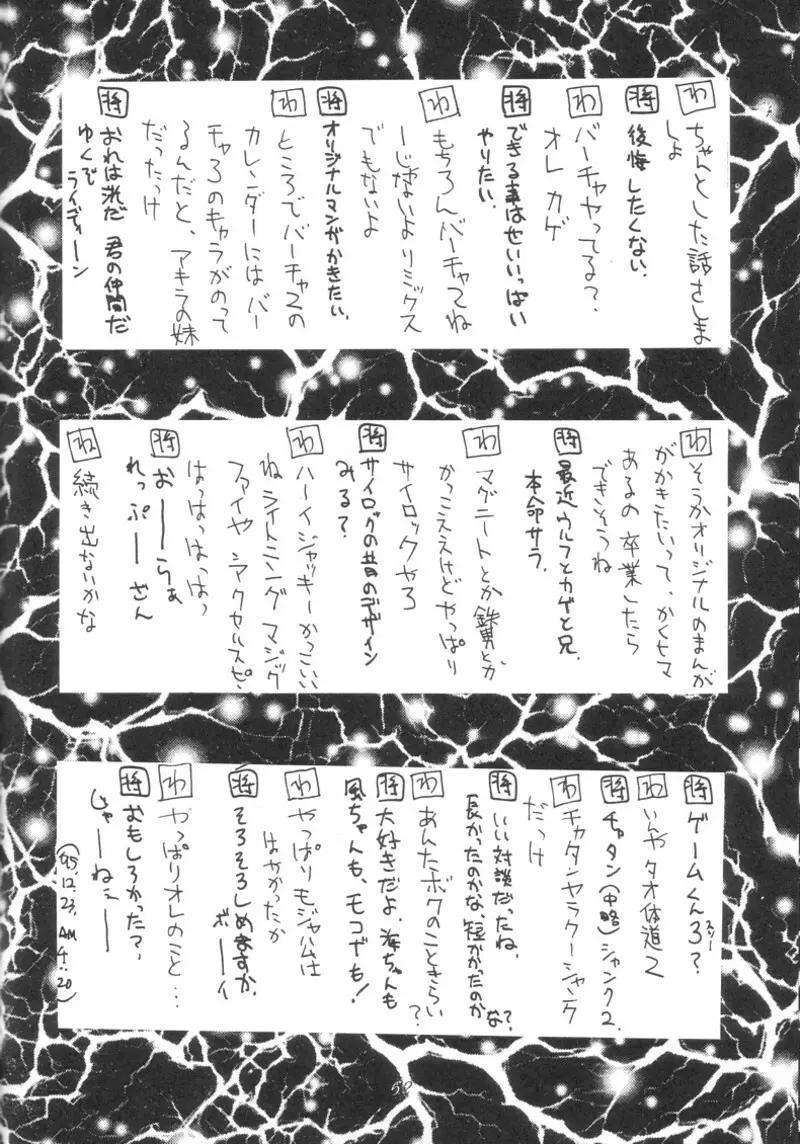 わ ちゃんとした話さしま
しょ
将 後悔したくない.
わ バーチャヤってる?
オレ カゲ
将 できる事はせいいっぱい
やりたい.
わ もちろんバーチャ2ね
ーじゃないよリミックス
でもないよ
将 オリジナルマンガかきたい.
わ ところでバーチャ2の
カレンダーにはバー
チャ3のキャラがのって
るんだと、アキラの妹
だったっけ
将 おれは洸だ 君の仲間だ
ゆくぞ
ライディーン
わ そうかオリジナルのまんが
がかきたいって、かくヒマ
あるの 卒業したら
できそうね
将 最近ウルフとカゲと兄.
本命サラ.
わ マグニートとか鉄男とか
かっこええけどやっぱり
サイロックやろ
将 サイロックの昔のデザイン
みる?
わ ハーイジャッキーかっこいい
ねライトニング マジック
ファイヤ シアクセルスピ、
はっはっはっはっ
将 おーーらぁ
れっぷーざん
わ 続き出ないかな
将 ゲームくん3?
わ いんや タオ体道2
将 チャタン(中略)シャンク2.
わ チャタンヤラクーシャンク
だっけ
将 いい対談だったね.
長かったのかな、短かかったのか
な?
わ あんたボクのこときらい
?
将 大好きだよ.海ちゃんも
風ちゃんも、モコナも!
わ やっぱりモジャハムは
はやかったか
将 そろそろしめますか.
ボーイ
わ やっぱりオレのこと...
将 おもしろかった?
じゃーねぇーー
('95.12.23. AM
4:20)